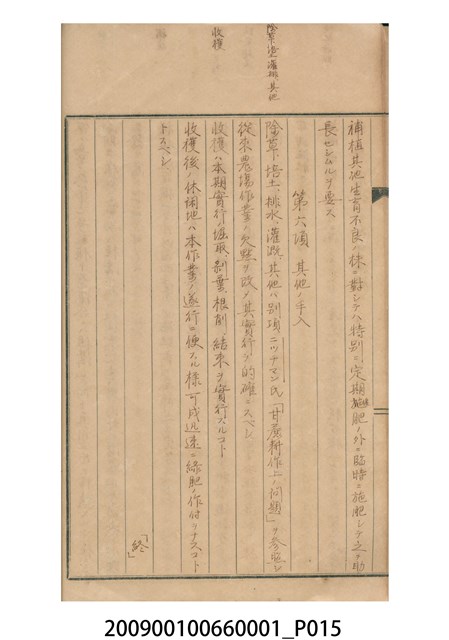 除草塗灌排其他
收穫
補植其他生育不良ノ株ニ對シテハ特別ニ定期施肥ノ外ニ臨時ニ施肥シテ之ヲ助
長セシムルヲ要ス
第六項 其他ノ手入
除草、培土、排水、灌漑、其他ハ別項ニツナマン氏「甘蔗耕作上ノ問題」ヲ參照シ
從來農場作業ノ欠點ヲ改メ其實行ヲ的確ニスベシ
收穫ハ本期實行ノ堀取、剝葉、根削、結束ヲ實行スルコト
收穫後ノ休閑地ハ本作業ノ遂行ニ便ナル樣可成迅速ニ綠肥ノ作付ヲナスコト
トスベシ
「終」
200900100660001_P015